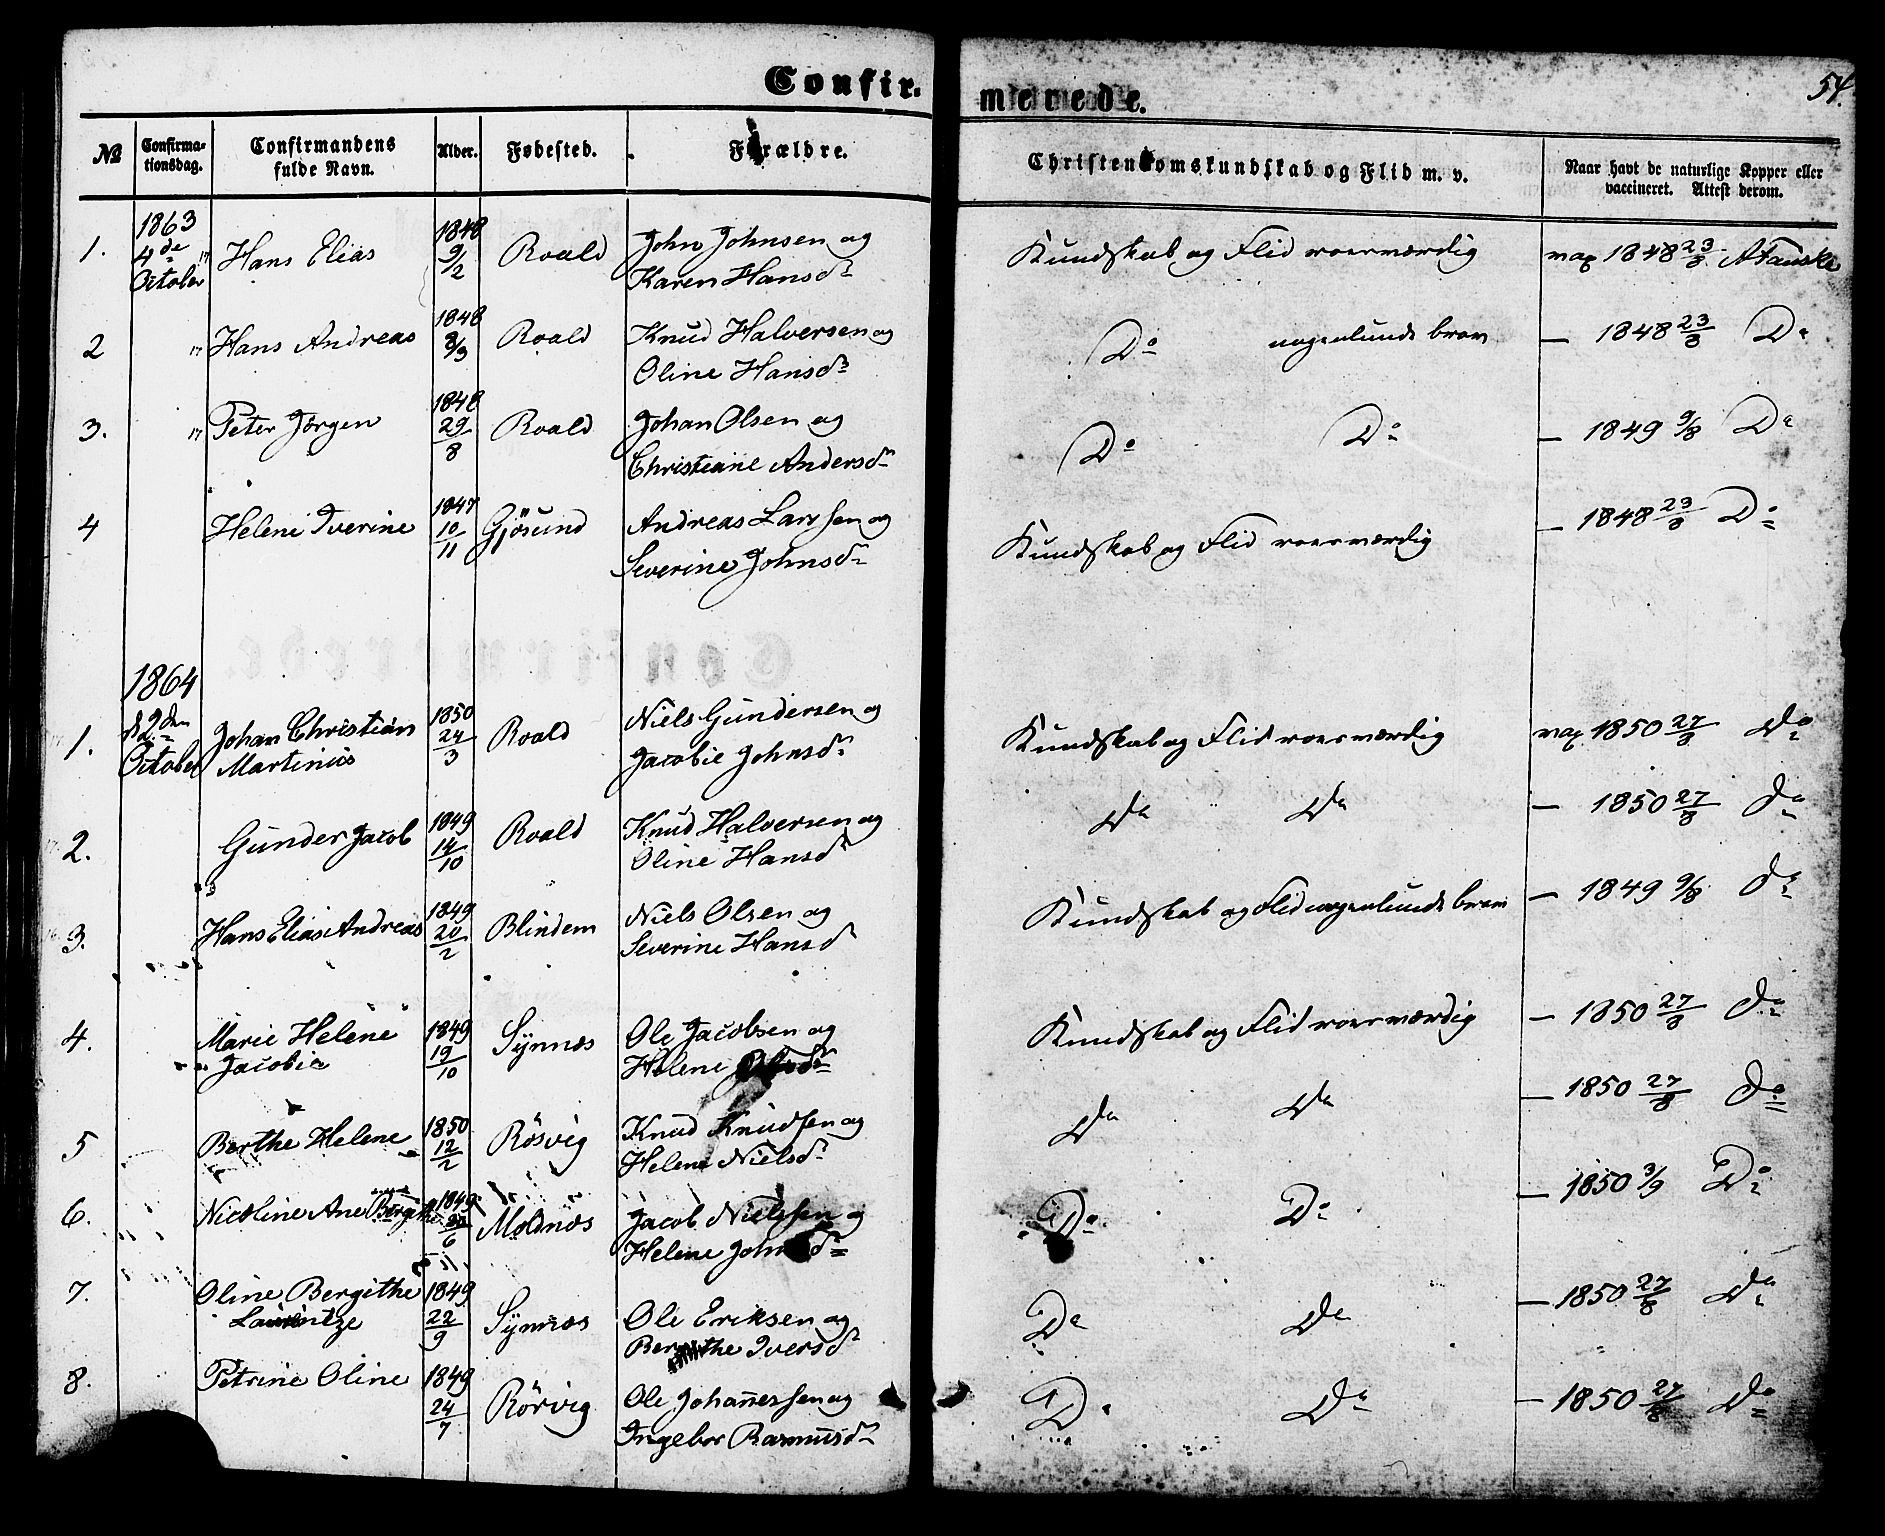 Confir-
merede.
54.
No
Confirma-
tionsdag.
Confirmandens
fulde Navn.
Alder.
Fødested.
Forældre.
Christendomskundskab og Flid m. v.
Naar havt de naturlige Kopper eller
vaccineret. Attest derom.
1863
1. 4de October " Hans Elias 1848 9/2 Roald John Johnsen og
Karen Hansd. Kundskab og Flid roesværdig vax 1848 23/8 AFauske
2 " Hans Andreas 1848 8/3 Roald Knud Halversen og
Oline Hansd. Do nogenlunde brav — 1848 23/8 Do
3. " Peter Jörgen 1848 29/8 Roald Johan Olsen og
Christiane Andersd. Do Do — 1849 9/8 Do
4 Helene Iverine 1847 10/11 Gjösund Andreas Larssen og
Severine Johnsd. Kundskab og Flid roesværdig — 1848 23/8 Do
1864
1. d 2den October Johan Christian 1850 24/3 Roald Niels Gundersen og
Martinus Jacobie Johnsd. Kundskab og Flid roesværdig vax 1850 27/8 Do
2. Gunder Jacob 1849 14/10 Roald Knud Halversen og
Oline Hansd. Do Do — 1850 27/8 Do
3. Hans Elias Andreas 1849 20/2 Blindem Niels Olsen og
Severine Hansd. Kundskab og Flid nogenlunde brav — 1849 9/8 Do
4. Marie Helene 1849 19/10 Synnæs Ole Jacobsen og
Jacobie Helene Kundskab og Flid roesværdig — 1850 27/8 Do
5 Berthe Helene 1850 12/2 Rösvig Knud Knudsen og
Helene Nielsd. Do Do — 1850 27/8 Do
6. Nicoline Ane Bergithe 1849 /6 Moldnæs Jacob Nielssen og
Helene Johnsd. Do Do — 1850 3/9 Do
7. Oline Bergithe 1849 22/9 Synnæs Ole Eriksen og
Laurentze Iversd. Do Do — 1850 27/8 Do
8. Petrine Oline 1849 24/7 Rörvig Ole Johannessen og
Ingebor Rasmusd. Do Do — 1850 27/8 Do